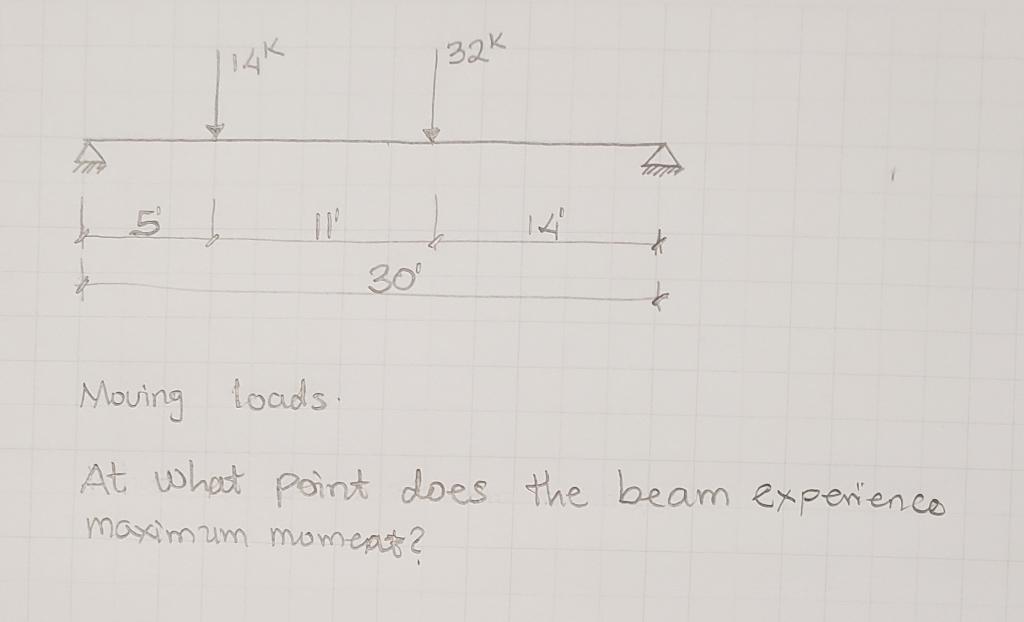 14K 32K
5' 11' 14'
30'
Moving loads.
At what point does the beam experience
maximum moment?